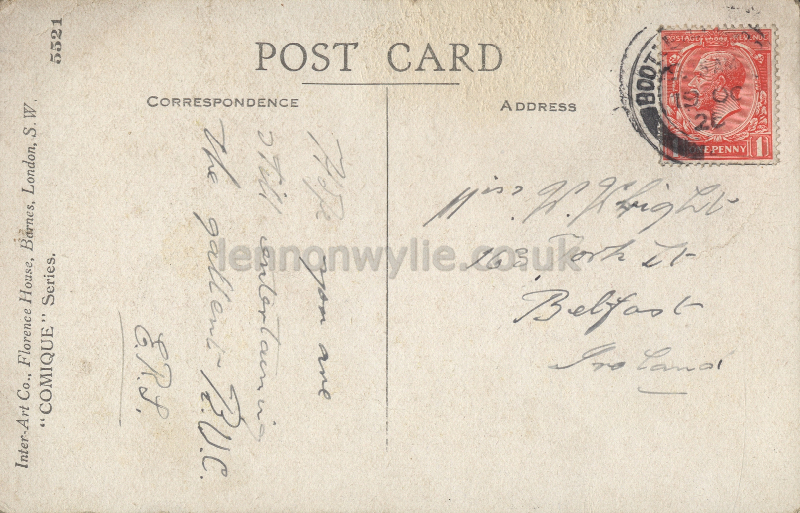 POST CARD
CORRESPONDENCE
ADDRESS
5521
Inter-Art Co., Florence House, Barnes, London, S.W.
"COMIQUE" Series.
Hope you are
still entertaining
the gallent R.U.C.
E.R.S.
Miss. W. Wright
163 York St
Belfast
Ireland
BOOT
19 OC
POSTAGE REVENUE
ONE PENNY
1
lennonwylie.co.uk